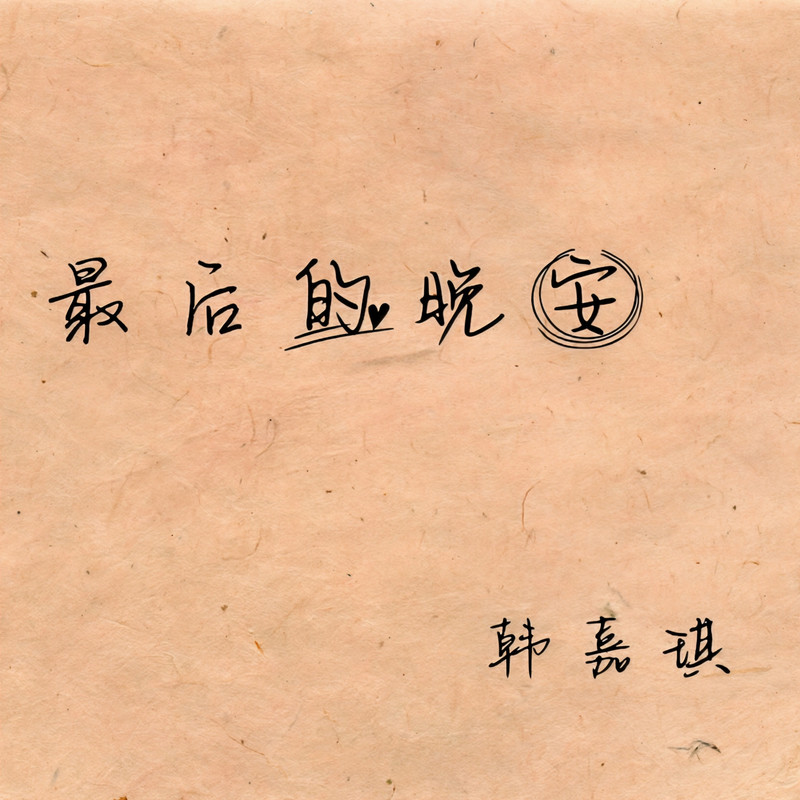 最后的晚安
韩嘉琪